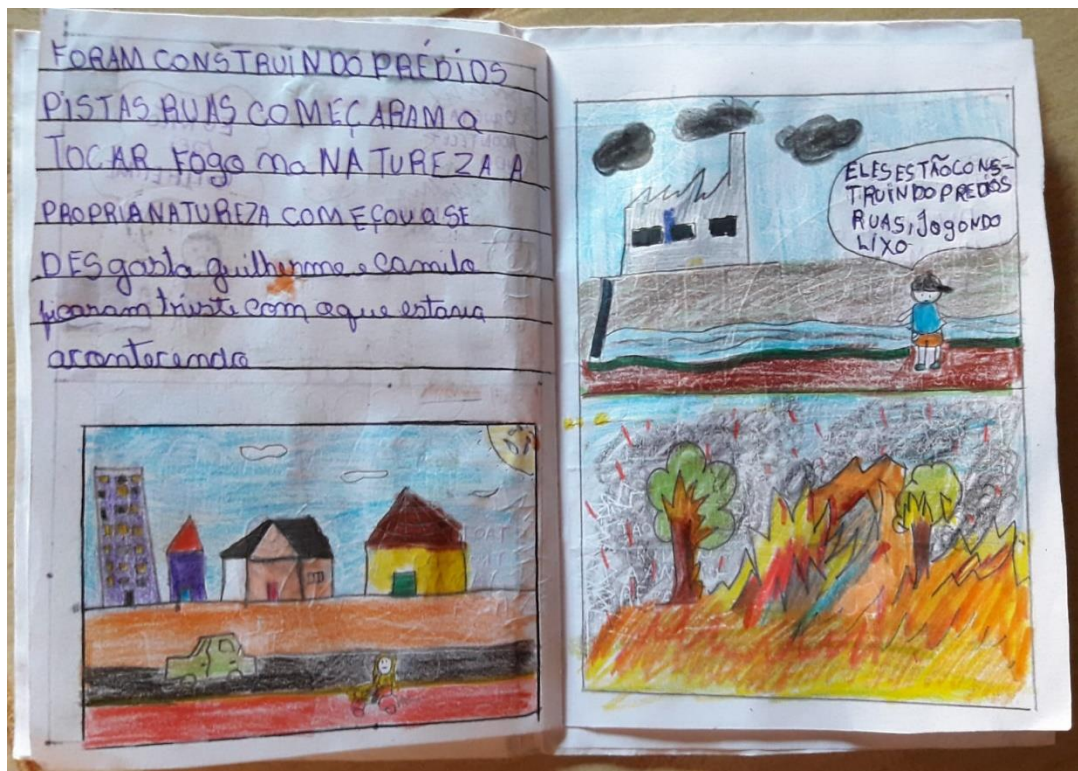 FORAM CONSTRUINDO PRÉDIOS
PISTAS RUAS COMEÇARAM a
TOCAR Fogo na NATUREZA A
PROPRIA NATUREZA COMEÇOU a SE
DESgasta guilherme e Camila
ficaram triste com oque estava
acontecendo
ELES ESTÃO CONS-
TRUINDO PREDIOS
RUAS, Jogondo
LIXO